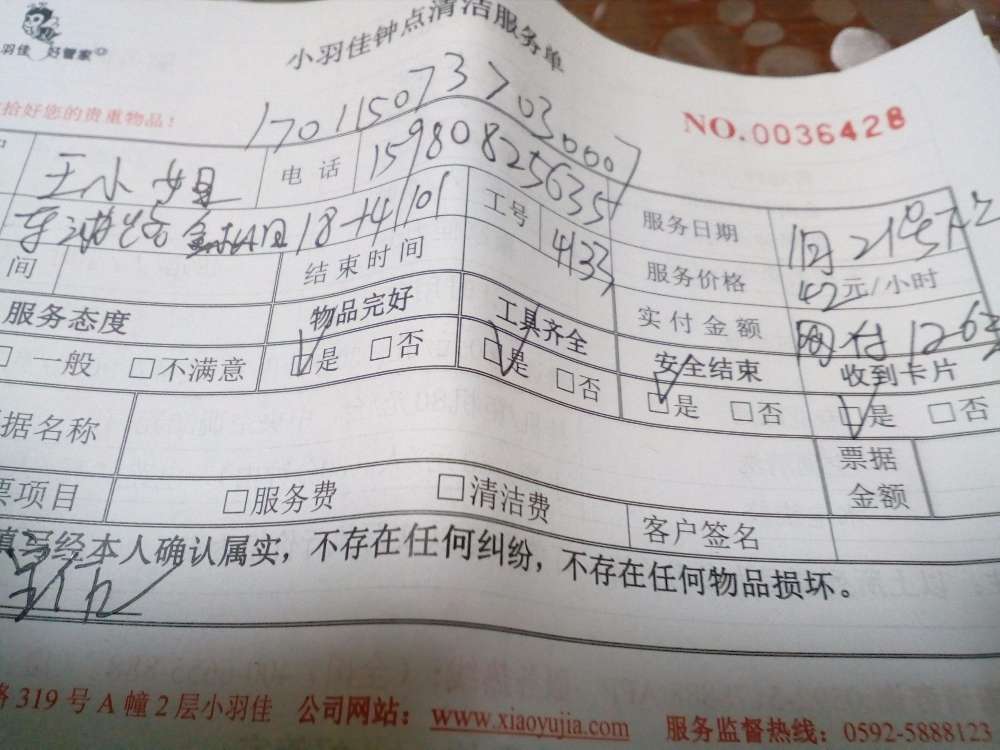 小羽佳钟点清洁服务单
羽佳 好管家
拾好您的贵重物品！
NO.0036428
1701150737030007
王小姐 电话 15980825635 服务日期 1月21号下
18-14 1101 工号 4133 服务价格 42元/小时
间 结束时间 实付金额 网付126
服务态度 物品完好 工具齐全 安全结束 收到卡片
□一般 □不满意 □是 □否 □是 □否 □是 □否 □是 □否
据名称 票据金额
票项目 □服务费 □清洁费 客户签名
填写经本人确认属实，不存在任何纠纷，不存在任何物品损坏。
路319号A幢2层小羽佳 公司网站：www.xiaoyujia.com 服务监督热线：0592-5888123